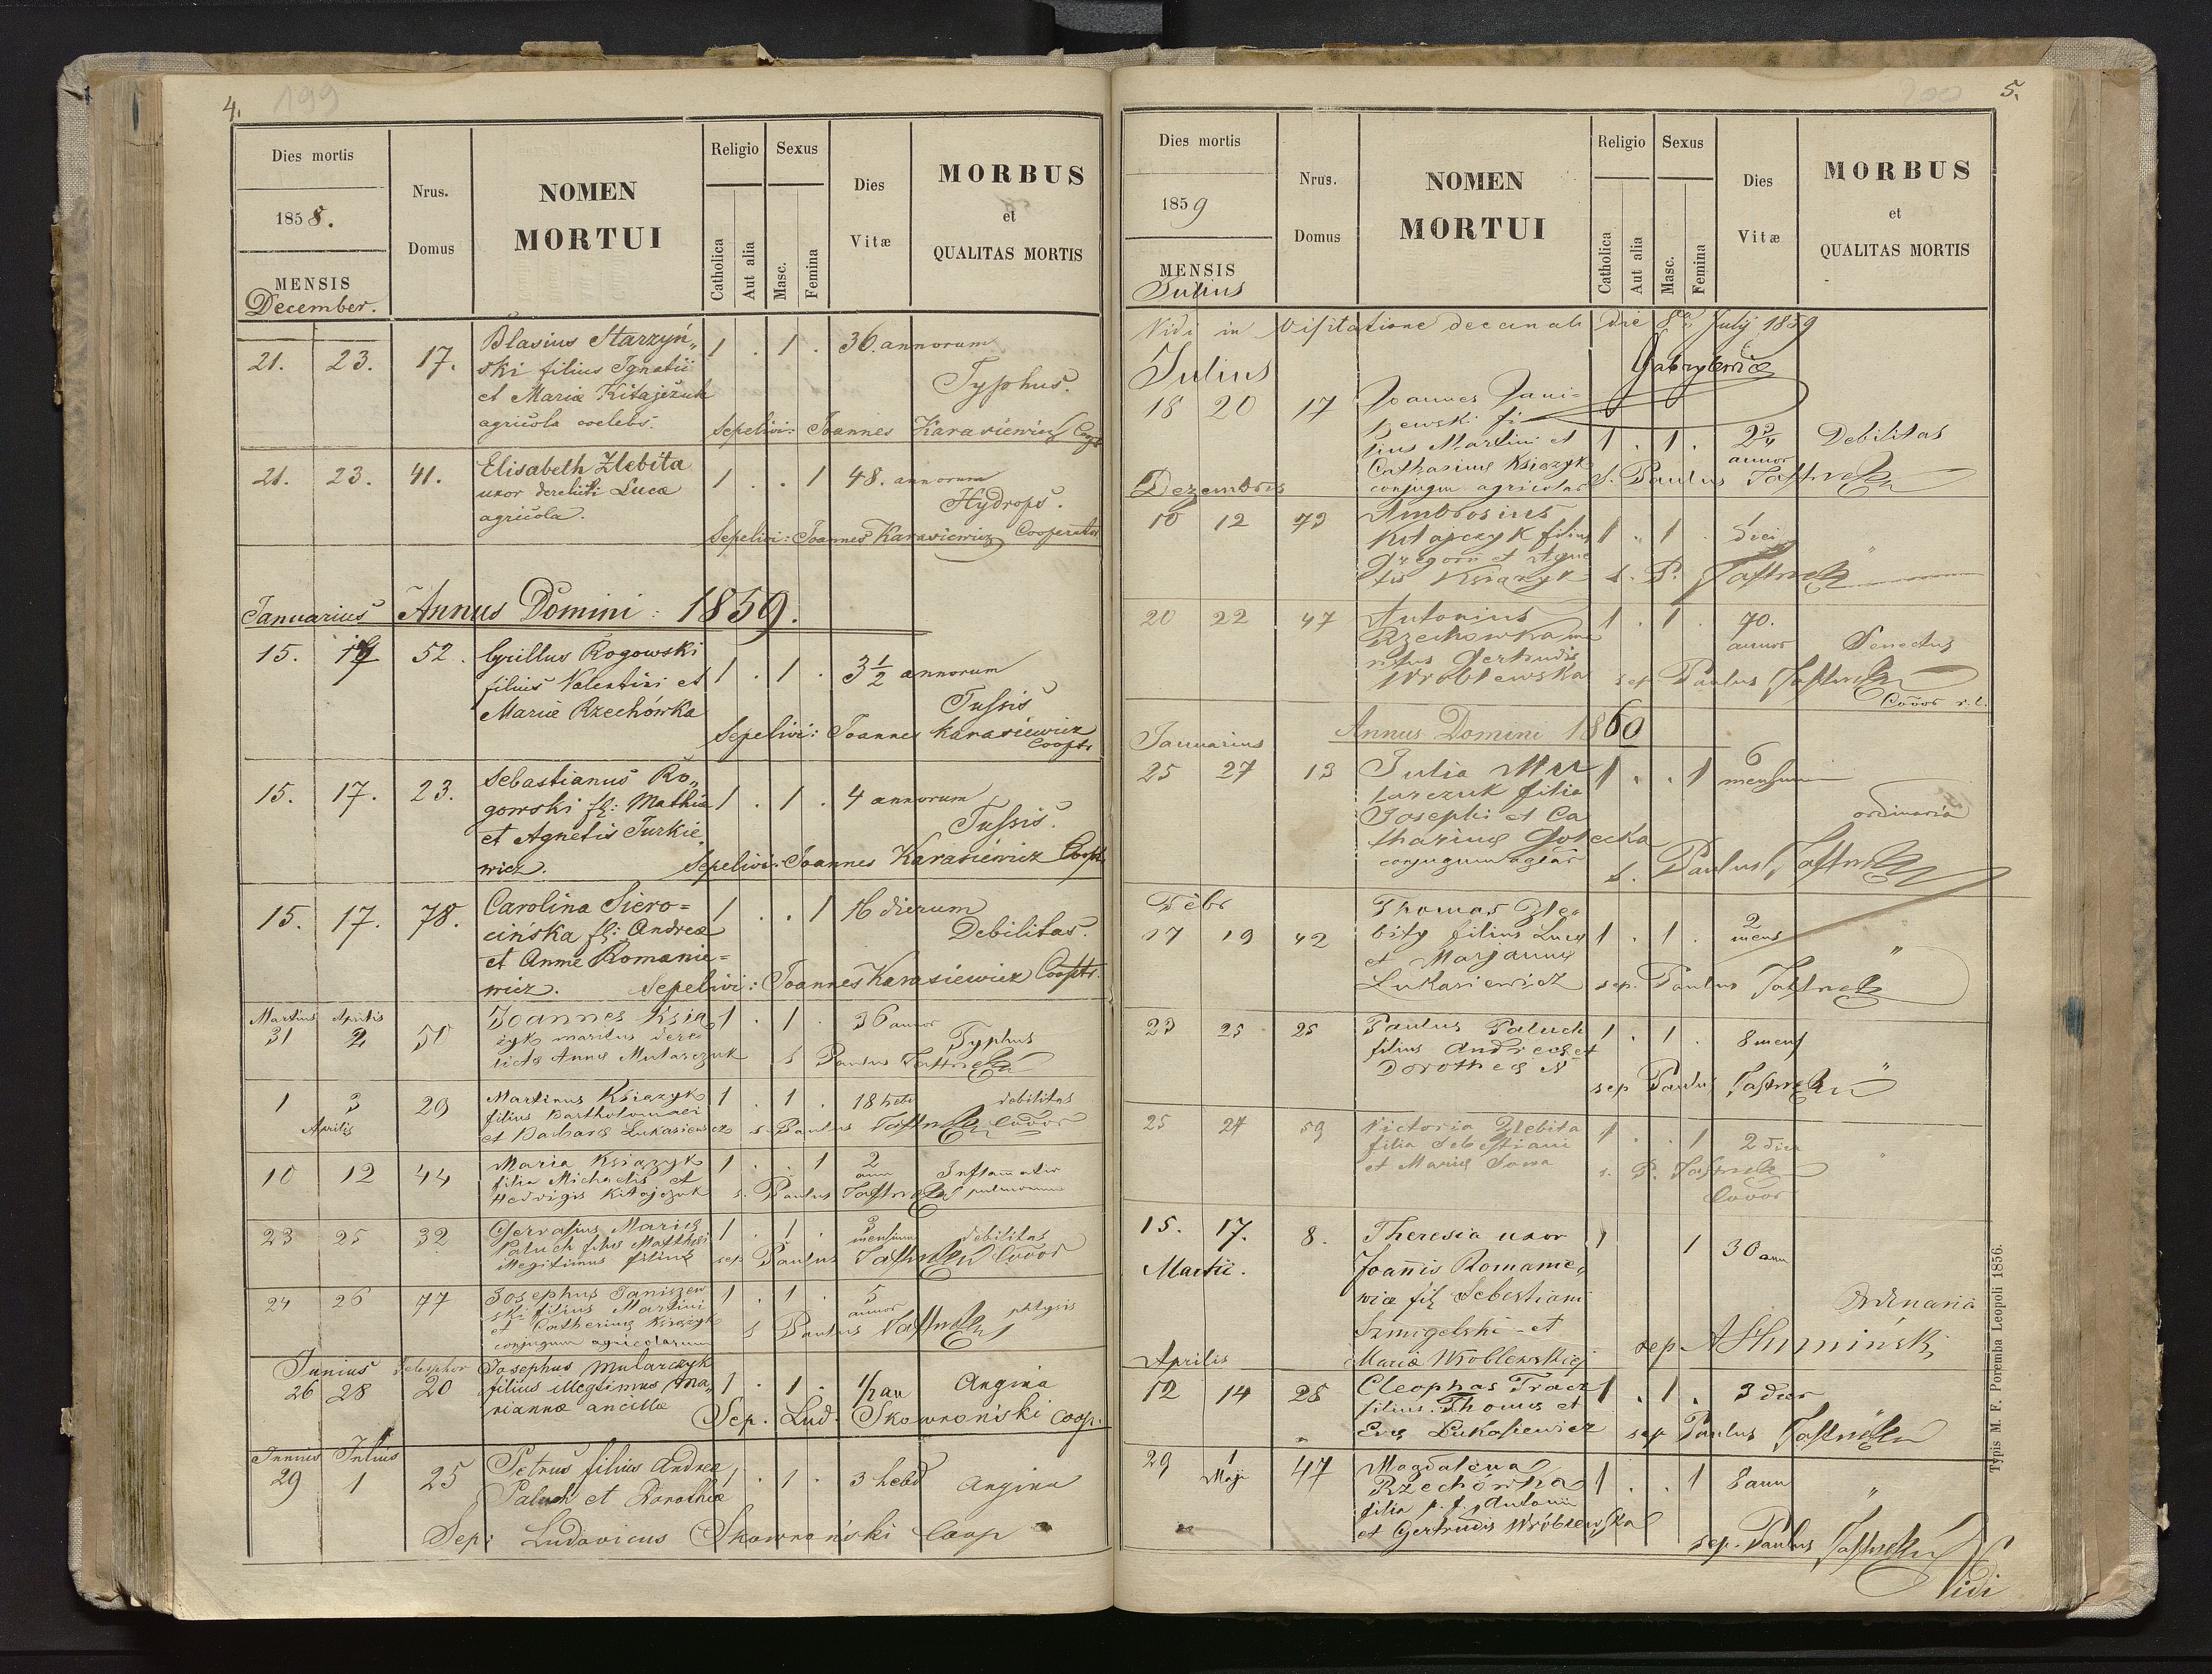 4.
199
Dies mortis
1858.
MENSIS
December.
Nrus.
Domus
NOMEN
MORTUI
Religio
Catholica
Aut alia
Sexus
Masc.
Femina
Dies
Vitæ
MORBUS
et
QUALITAS MORTIS
21. 23. 17. Blasius Starzyń„ 1 . 1 . 36. annorum
ski filius Ignatii
et Mariæ Kitajczuk Typhus.
agricola coelebs. Sepelivi: Joannes Karasiewicz
21. 23. 41. Elisabeth Zlebita 1 . . 1 48. annorum
uxor derelicti Lucæ Hydrops.
agricola.
Sepelivi: Joannes Karasiewicz Cooperator
Januarius Annus Domini : 1859.
15. 52. Cyrillus Rogowski 1 . 1 . 3 1/2 annorum
filius Valentini et
Mariæ Rzechówka Tussis
Sepelivi: Joannes Karasiewicz
Cooptr
15. 17. 23. Sebastianus Ro„ 1 . 1 . 4 annorum
gowski fil: Mathiæ
et Agnetis Turkie Tussis.
wicz. Sepelivi: Joannes Karasiewicz Cooptr
15. 17. 78. Carolina Siero= 1 . . 1 16 dierum
cińska fil: Andreæ Debilitas.
et Annæ Romanie=
wicz. Sepelivi: Joannes Karasiewicz Cooptr.
Martius Aprilis
31 2 50 Joannes Książ 1 . 1 . 36 annor
zyk maritus dere Typhus
lictæ Annæ Mularczuk s Paulus
1 3 29 Martinus Książyk 1 . 1 . 18 hebd debilitas
Aprilis filius Bartholomaei
et Barbaræ Lukasiewicz s. Paulus
10 12 44 Maria Książyk 1 . . 1 2 Inflammatio
filia Michaelis et ann pulmonum
Hedvigis Kitajczuk s. Paulus
23 25 32 Gervasius Mariæ 1 . 1 . 3 debilitas
Paluch filiæ Matthæi mensium
illegitimus filius sep Paulus
24 26 77 Josephus Janiszew 1 . 1 . 5 phtysis
ski filius Martini annor
et Catharinæ Książyk s Paulus
conjugum agricolarum
Junius
26 28 20 Josephus Mularczyk 1 . 1 . 1/2 an Angina
filius illegtimus Ma„
riannæ ancillæ Sep. Lud. Skowroński coop.
Junius Julius
29 1 25 Petrus filius Andreæ 1 . 1 . 3 hebd Angina
Paluch et Dorotheæ
Sep: Ludovicus Skowroński Coop
5.
200
Dies mortis
1859
MENSIS
Julius
Nrus.
Domus
NOMEN
MORTUI
Religio
Catholica
Aut alia
Sexus
Masc.
Femina
Dies
Vitæ
MORBUS
et
QUALITAS MORTIS
Vidi in Visitatione decanali die 8va July 1859
Julius
18 20 17 Joannes Jani-
szewski fi-
lius Martini et 1 . 1 . annor Debilitas
Catharinæ Książyk
conjugum agricolar S. Paulus
Dezembris
10 12 73 Ambrosius
Kitajczyk filius 1 . 1 . 1 diei
Gregorii et Agne „
tis Książyk s. P.
20 22 47 Antonius 1 . 1 . 70.
Rzechowka ma annor Senectus
ritus Gertrudis
Wroblewska sep. Paulus
Annus Domini 1860
Januarius
25 27 13 Julia Mu 1 . . 1 6
larczuk filia mensium
Josephi et Ca ordinaria
tharinæ Gołecka
conjugum s. Paulus
Febr
17 19 42 Thomas Zle-
bity filius Lucæ 1 . 1 . 2
et Marjannæ mens „
Lukasiewicz sep. Paulus
23 25 25 Paulus Paluch 1 . 1 . 8 mens
filius Andreæ et
Dorotheæ N „
sep Paulus
25 27 59 Victoria Zlebita 1 . . 1 2 dier
filia Sebastiani
et Mariæ Sowa s. P. „
15. 17. 8. Theresia uxor 1 1 30 ann
Martii. Joannis Romanie„
wicz fil Sebastiani Ordinaria
Szmigelski et
Mariæ Wróblewskiej sep.
Aprilis
12 14 28 Cleophas Tracz 1 . 1 . 3 dier
filius Thomæ et „
Evæ Lukasiewicz sep Paulus
29 1 47 Magdalena 1 . . 1 8 ann
Maji Rzechówka
filia p. f. Antonii „
et Gertrudis Wróblewska
sep. Paulus
Vidi
Typis M. F. Poremba Leopoli 1856.